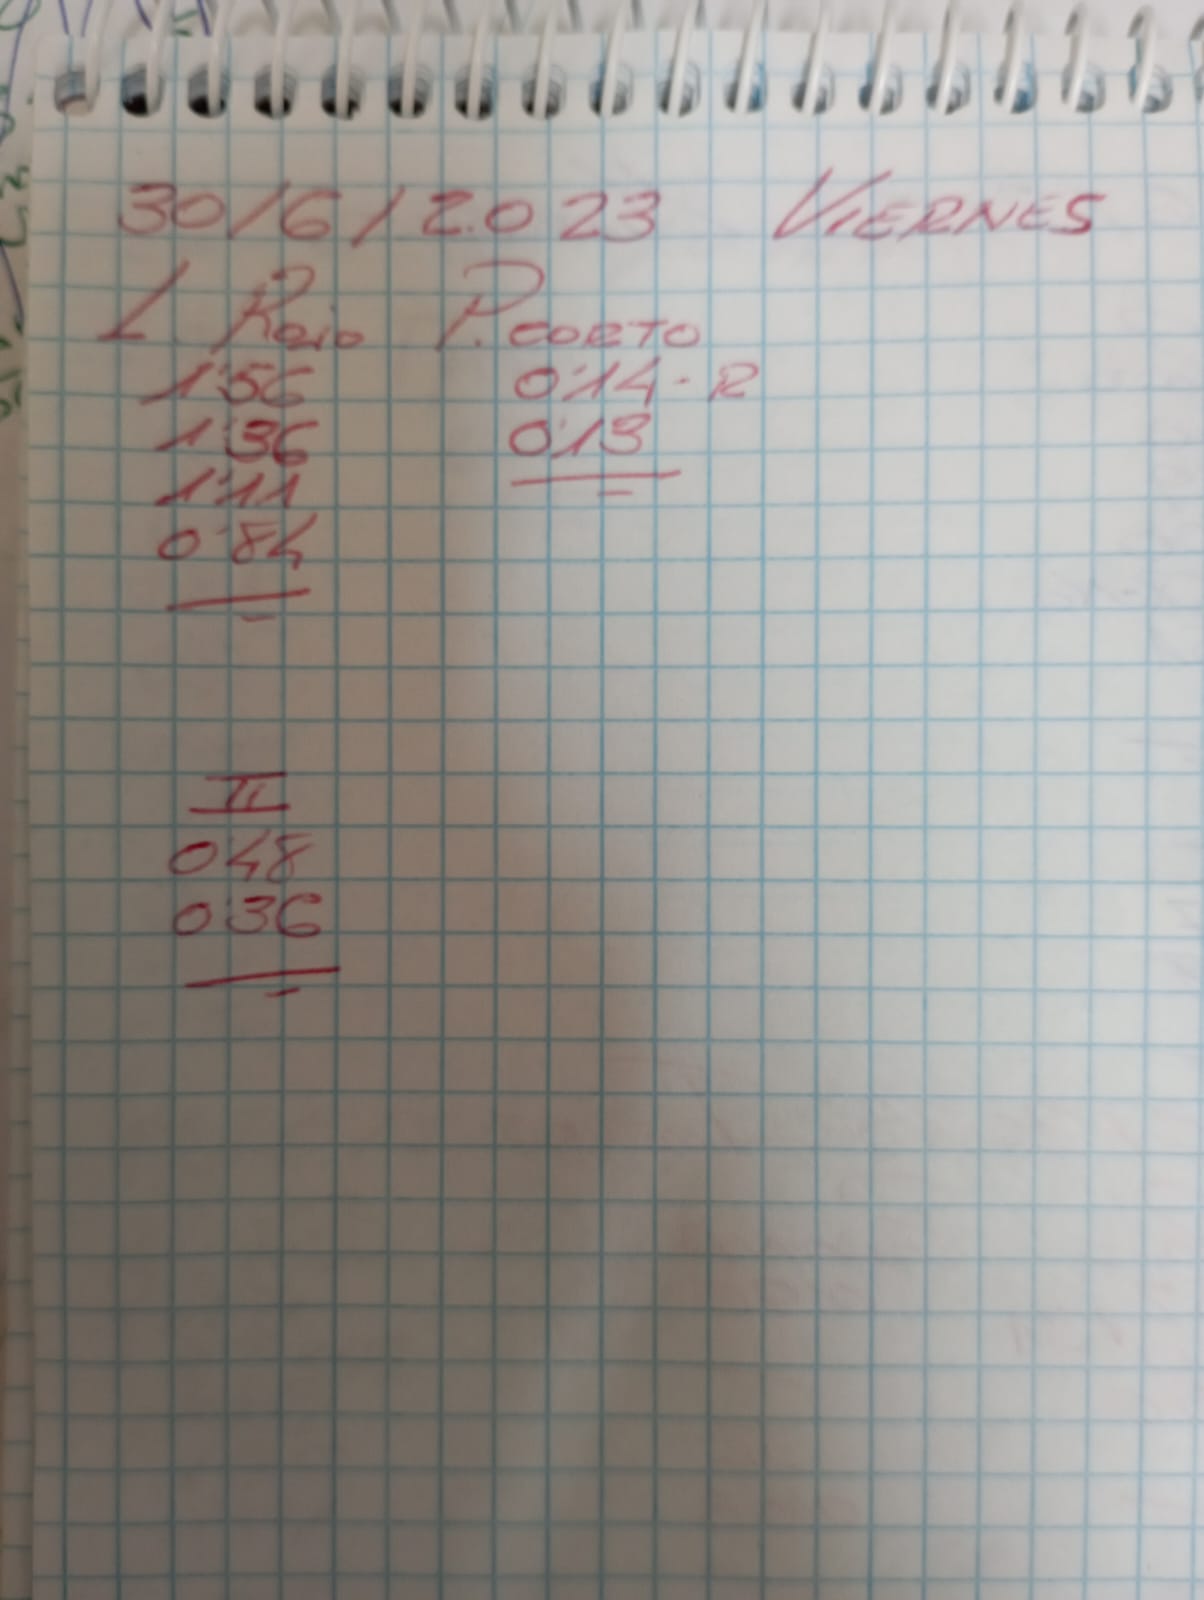 30/6/2.023 VIERNES
I Roio P. CORTO
1'56 0'14 - R
1'36 0'13
1'11
0'84
II
0'48
0'36